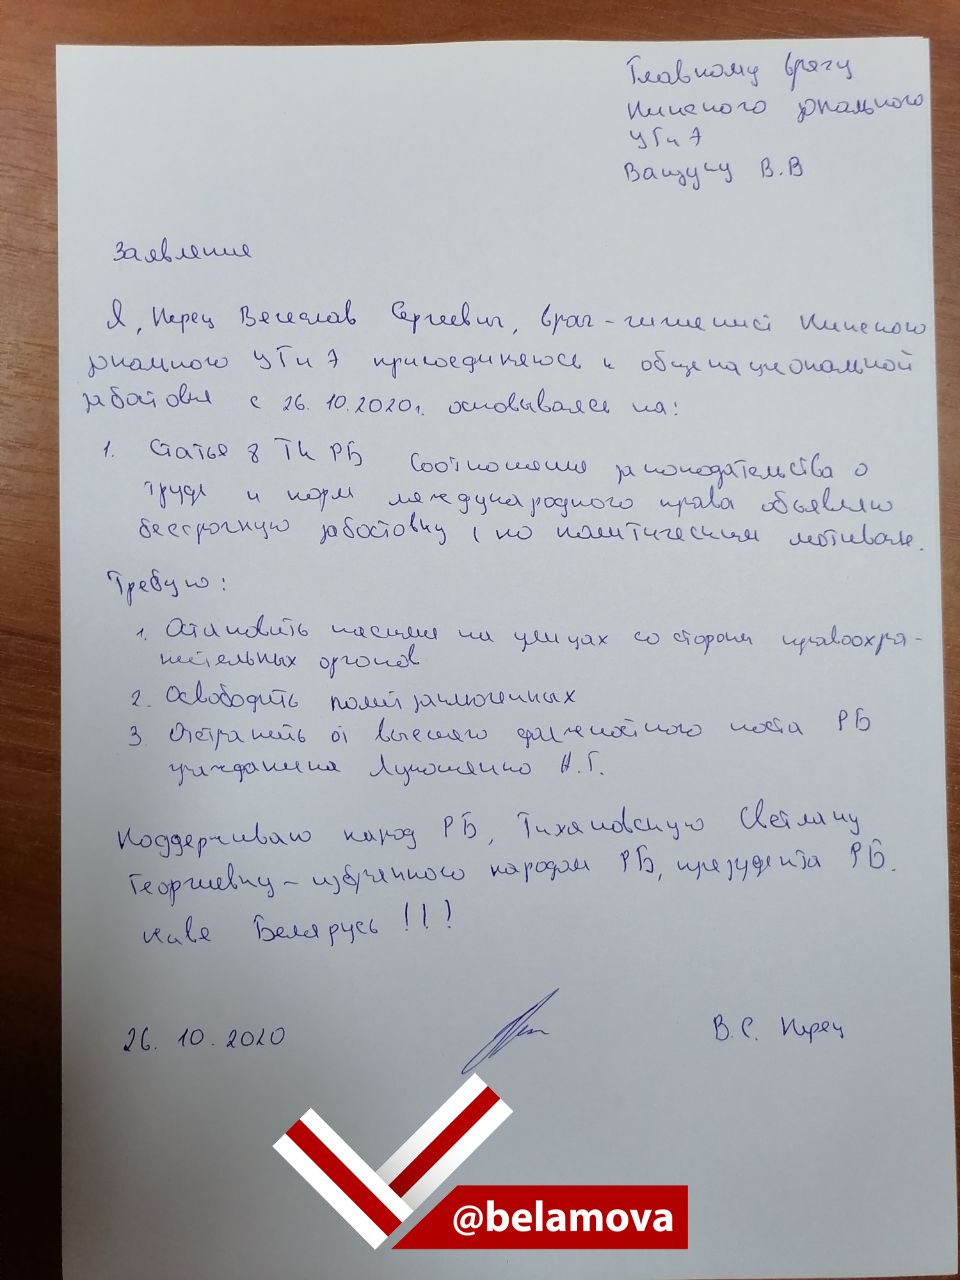 Главному врачу
Пинского зонального
ЦГиЭ
Ващуку В.В
Заявление
Я, Перец Вячеслав Сергеевич, врач-гигиенист Пинского
зонального ЦГиЭ присоединяюсь к общенациональной
забастовке с 26.10.2020г. основываясь на:
1. Статья 8 ТК РБ Соотношение законодательства о
труде и норм международного права объявляю
бессрочную забастовку (по политическим мотивам.
Требую:
1. Остановить насилие на улицах со стороны правоохра-
нительных органов
2. Освободить политзаключенных
3. Отстранить от высшего должностного поста РБ
гражданина Лукашенко А.Г.
Поддерживаю народ РБ, Тихановскую Светлану
Георгиевну - избранного народом РБ, президента РБ.
Живе Беларусь!!!
26.10.2020
В.С. Перец
@belamova